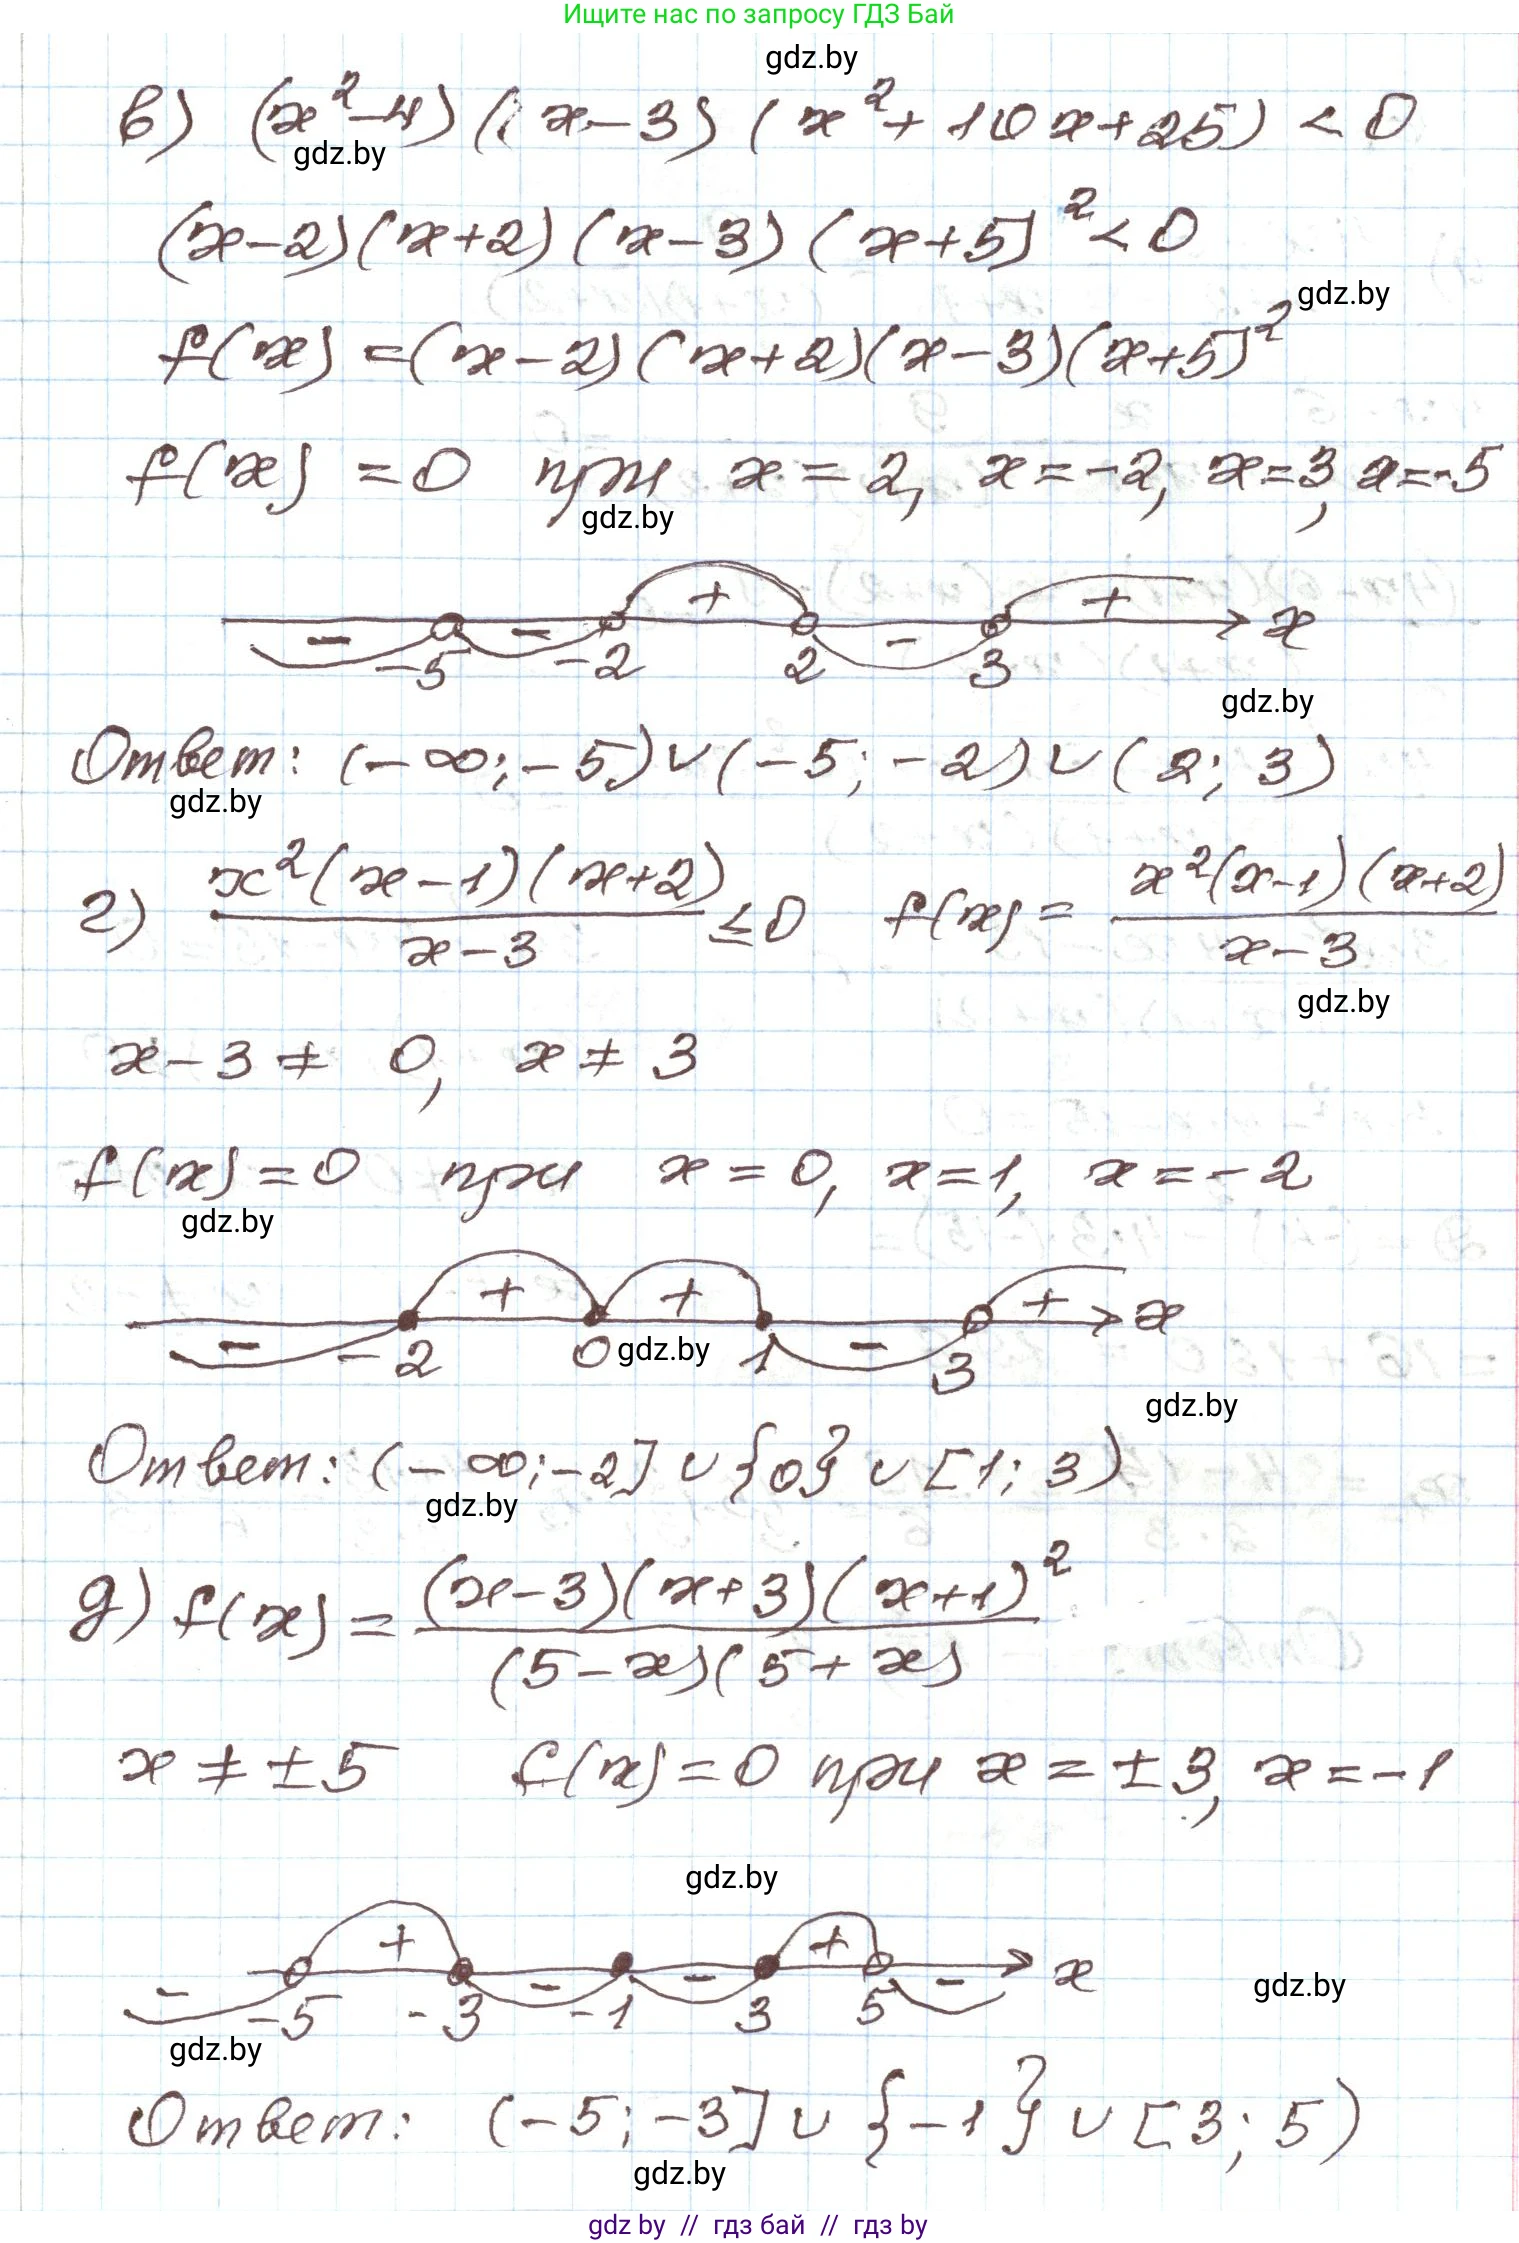 Ищите нас по запросу ГДЗ Бай
gdz.by
в) (x²-4)(x-3)(x²+10x+25)<0
gdz.by
(x-2)(x+2)(x-3)(x+5)²<0
gdz.by
f(x)=(x-2)(x+2)(x-3)(x+5)²
f(x)=0 при x=2, x=-2, x=3, x=-5
gdz.by
- - + - + x
-5 -2 2 3
gdz.by
Ответ: (-∞;-5)∪(-5;-2)∪(2;3)
gdz.by
г) x²(x-1)(x+2)/x-3 ≤0 f(x)= x²(x-1)(x+2)/x-3
gdz.by
x-3≠0, x≠3
f(x)=0 при x=0, x=1, x=-2
gdz.by
- + + - + x
-2 0 gdz.by 1 3
gdz.by
Ответ: (-∞;-2]∪{0}∪[1;3)
gdz.by
д) f(x)= (x-3)(x+3)(x+1)²/(5-x)(5+x)
x≠±5 f(x)=0 при x=±3, x=-1
gdz.by
- + - - + - x
gdz.by
-5 -3 -1 3 5
gdz.by
Ответ: (-5;-3]∪{-1}∪[3;5)
gdz.by
gdz by // гдз бай // гдз by